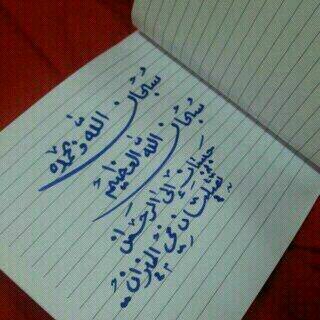 سبحان الله وبحمده
سبحان الله العظيم
حبيبتان إلى الرحمن
ثقيلتان في الميزان